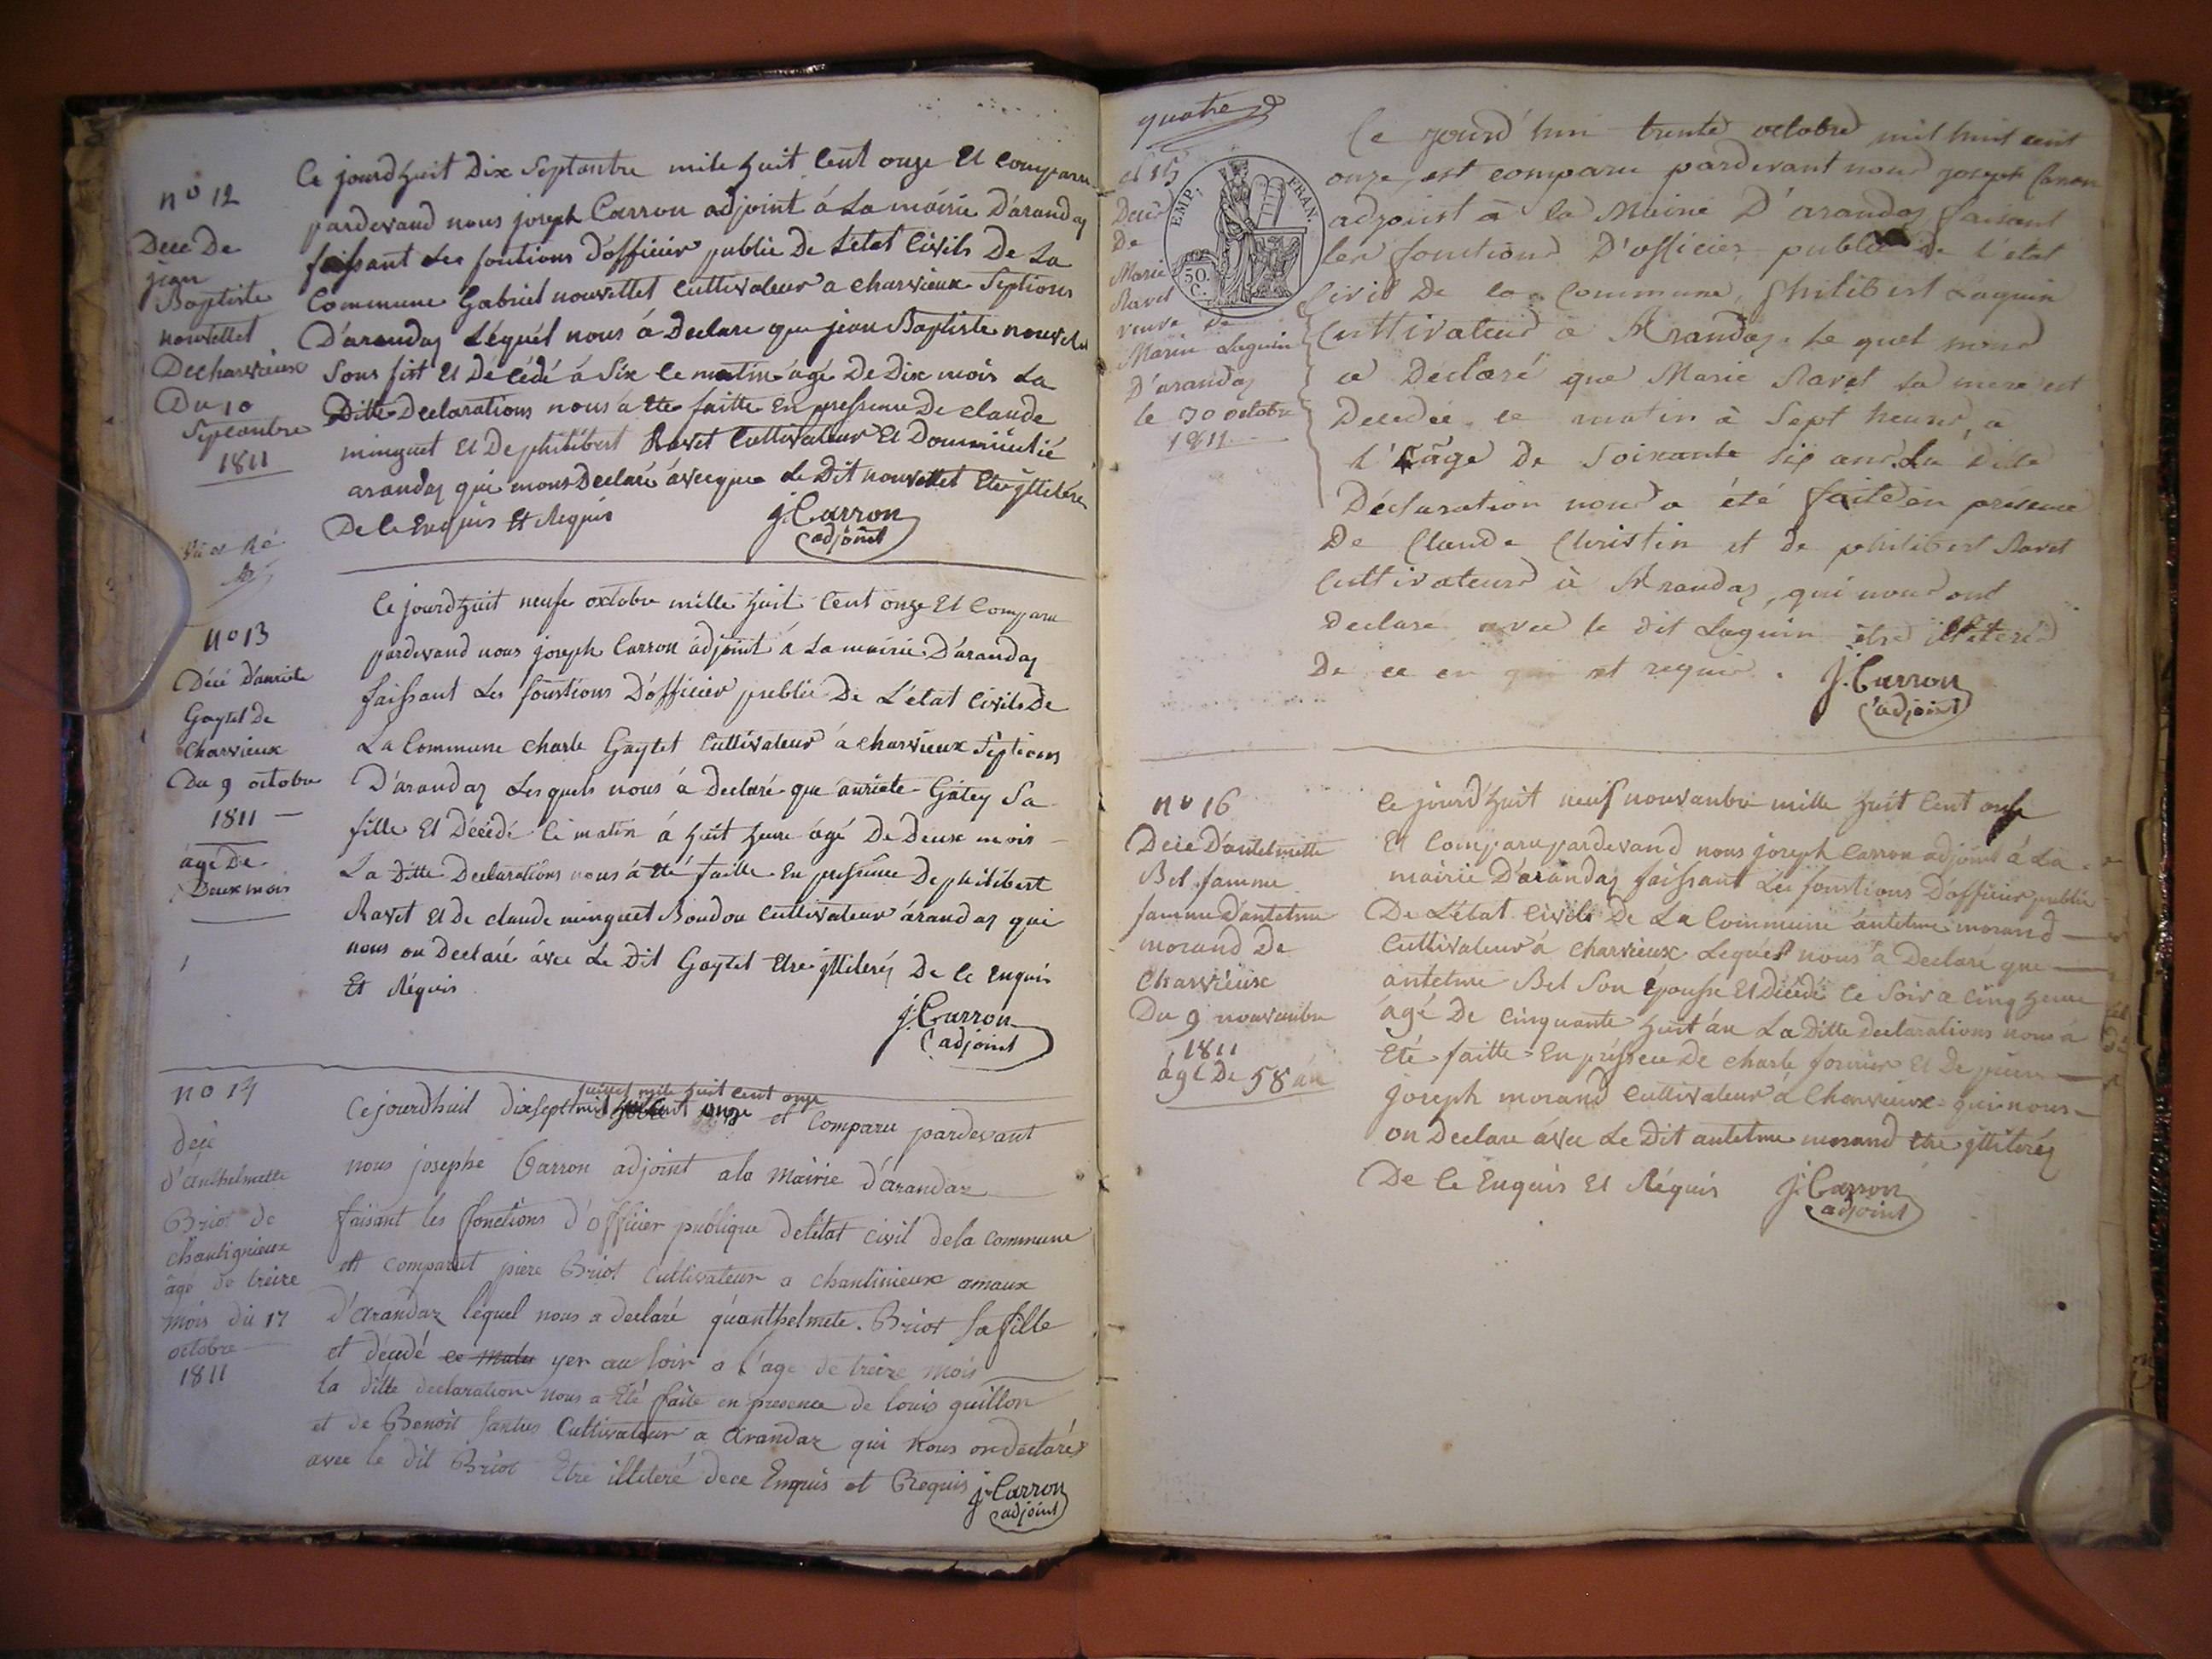 n° 12
Dece De
jean
Baptiste
nouvellet
Decharvieux
Du 10
Septanbre
1811
Ce jourdhuit Dix Septanbre mile huit Cent onze Et Comparu
pardevand nous joseph Carron adjoint á La mairie D'arandas
faissant Les fontions d'officier public De Letat Civils De La
Commune Gabriel nouvellet Cultivateur a charvieux Septions
D'arandas Léquél nous á Declare que jean Baptiste nouvelet
Sons fist Et Décédé á Six le matin ágé De Dix mois La
Ditte Declarations nous a Ete faitte En pressence De claude
minguet Et De philibert Ravet Cultivateur Et Doumicilié
arandas qui nous Declaré ávecque Le Dit nouvellet Etre jlliterés
De Ce Enquis Et Requis
J. Carron
adjoint
n° 13
Décé d'auriete
Gaytet De
Charvieux
Du 9 octobre
1811
ágé De
Deux mois
Ce jourdhuit neufe octobre mille huit Cent onze Et Comparu
pardevand nous joseph Carron ádjoint á La mairie D'arandas
faissant Les fonstions D'officier public De L'état Civils De
La Commune charle Gaytet Cultivateur á charvieux Septions
D'arandas Les quels nous á Declaré que auriete Gátey Sa
fille Et Décédé Ce matin á huit heure ágé De Deux mois
La Ditte Declarations nous á Eté faitte En pressence De philibert
Ravet Et De claude minguet Boudou Cultivateur árandas qui
nous on Declaré ávec Le Dit Gaytet Etre jlliterés De Ce Enquis
Et Réquis
J. Carron
adjoint
no 14
decé
d'anthelmette
Briot de
chantignieux
age de treize
mois du 17
octobre
1811
juillet mile huit cent onze
Cejourdhuil dixsept onze et Comparu pardevant
nous josephe Carron adjoint ala Mairie d'arandaz
faisant les fonctions d'officier publique deletat civil dela commune
et comparut piere Briot Cultivateur a chantinieux amaux
d'arandaz lequel nous a declaré qu'anthelmete Briot sa fille
et décédé ce matin yer au soir a l'age de treize mois
la ditte declaration nous a Eté faite en presence de louis guillon
et de Benoit Cultivateur a arandaz qui nous on declarés
avec le dit Briot Etre illiteré dece Enquis et Requis
J. Carron
adjoint
quatre
n 15
Decé
De
Marie
Ravet
veuve De
Marin Laguin
D'arandas
le 30 octobre
1811
EMP. FRAN.
50. C.
Ce jourd'hui trente octobre mil huit cent
onze, est comparu pardevant nous joseph Carron
adjoint à la Mairie D'arandas faisant
les fonctions D'officier public De l'état
Civil De la Commune, philibert Laguin
Cultivateur à Arandas. Le quel nous
a Déclaré que Marie Ravet sa mere est
Decedée ce matin à Sept heures, a
l'âge De soixante six ans. La Ditte
Déclaration nous a été faite en présence
De Claude Christin et de philibert Ravet
Cultivateurs à Arandas, qui nous ont
Declaré avec le dit Laguin être illiterés
De ce en quis et requis.
J. Carron
adjoint
n° 16
Decé D'antelmette
Bel famme
famme D'antelme
morand De
Charvieux
Du 9 nouvanbre
1811
ágé De 58 án
Ce jourdhuit neuf nouvanbre mille huit Cent onse
Et Comparu pardevand nous joseph Carron adjoint á La
mairie D'arandas faissant Les fonstions D'officier public
De L'état Civils De La Commune ántelme morand
Cultivateur á charvieux Lequél nous á Declaré que
ántelme Bel Son épouse Et Décédé Ce Soir a cinq heure
ágé De cinquante huit án La Ditte declarations nous á
Eté faitte En présseu De charle fornier Et De piere
joseph morand Cultivateur á Charvieux qui nous
on Declare ávec Le Dit antelme morand Etre jlliterés
De Ce Enquis Et Réquis
J. Carron
adjoint